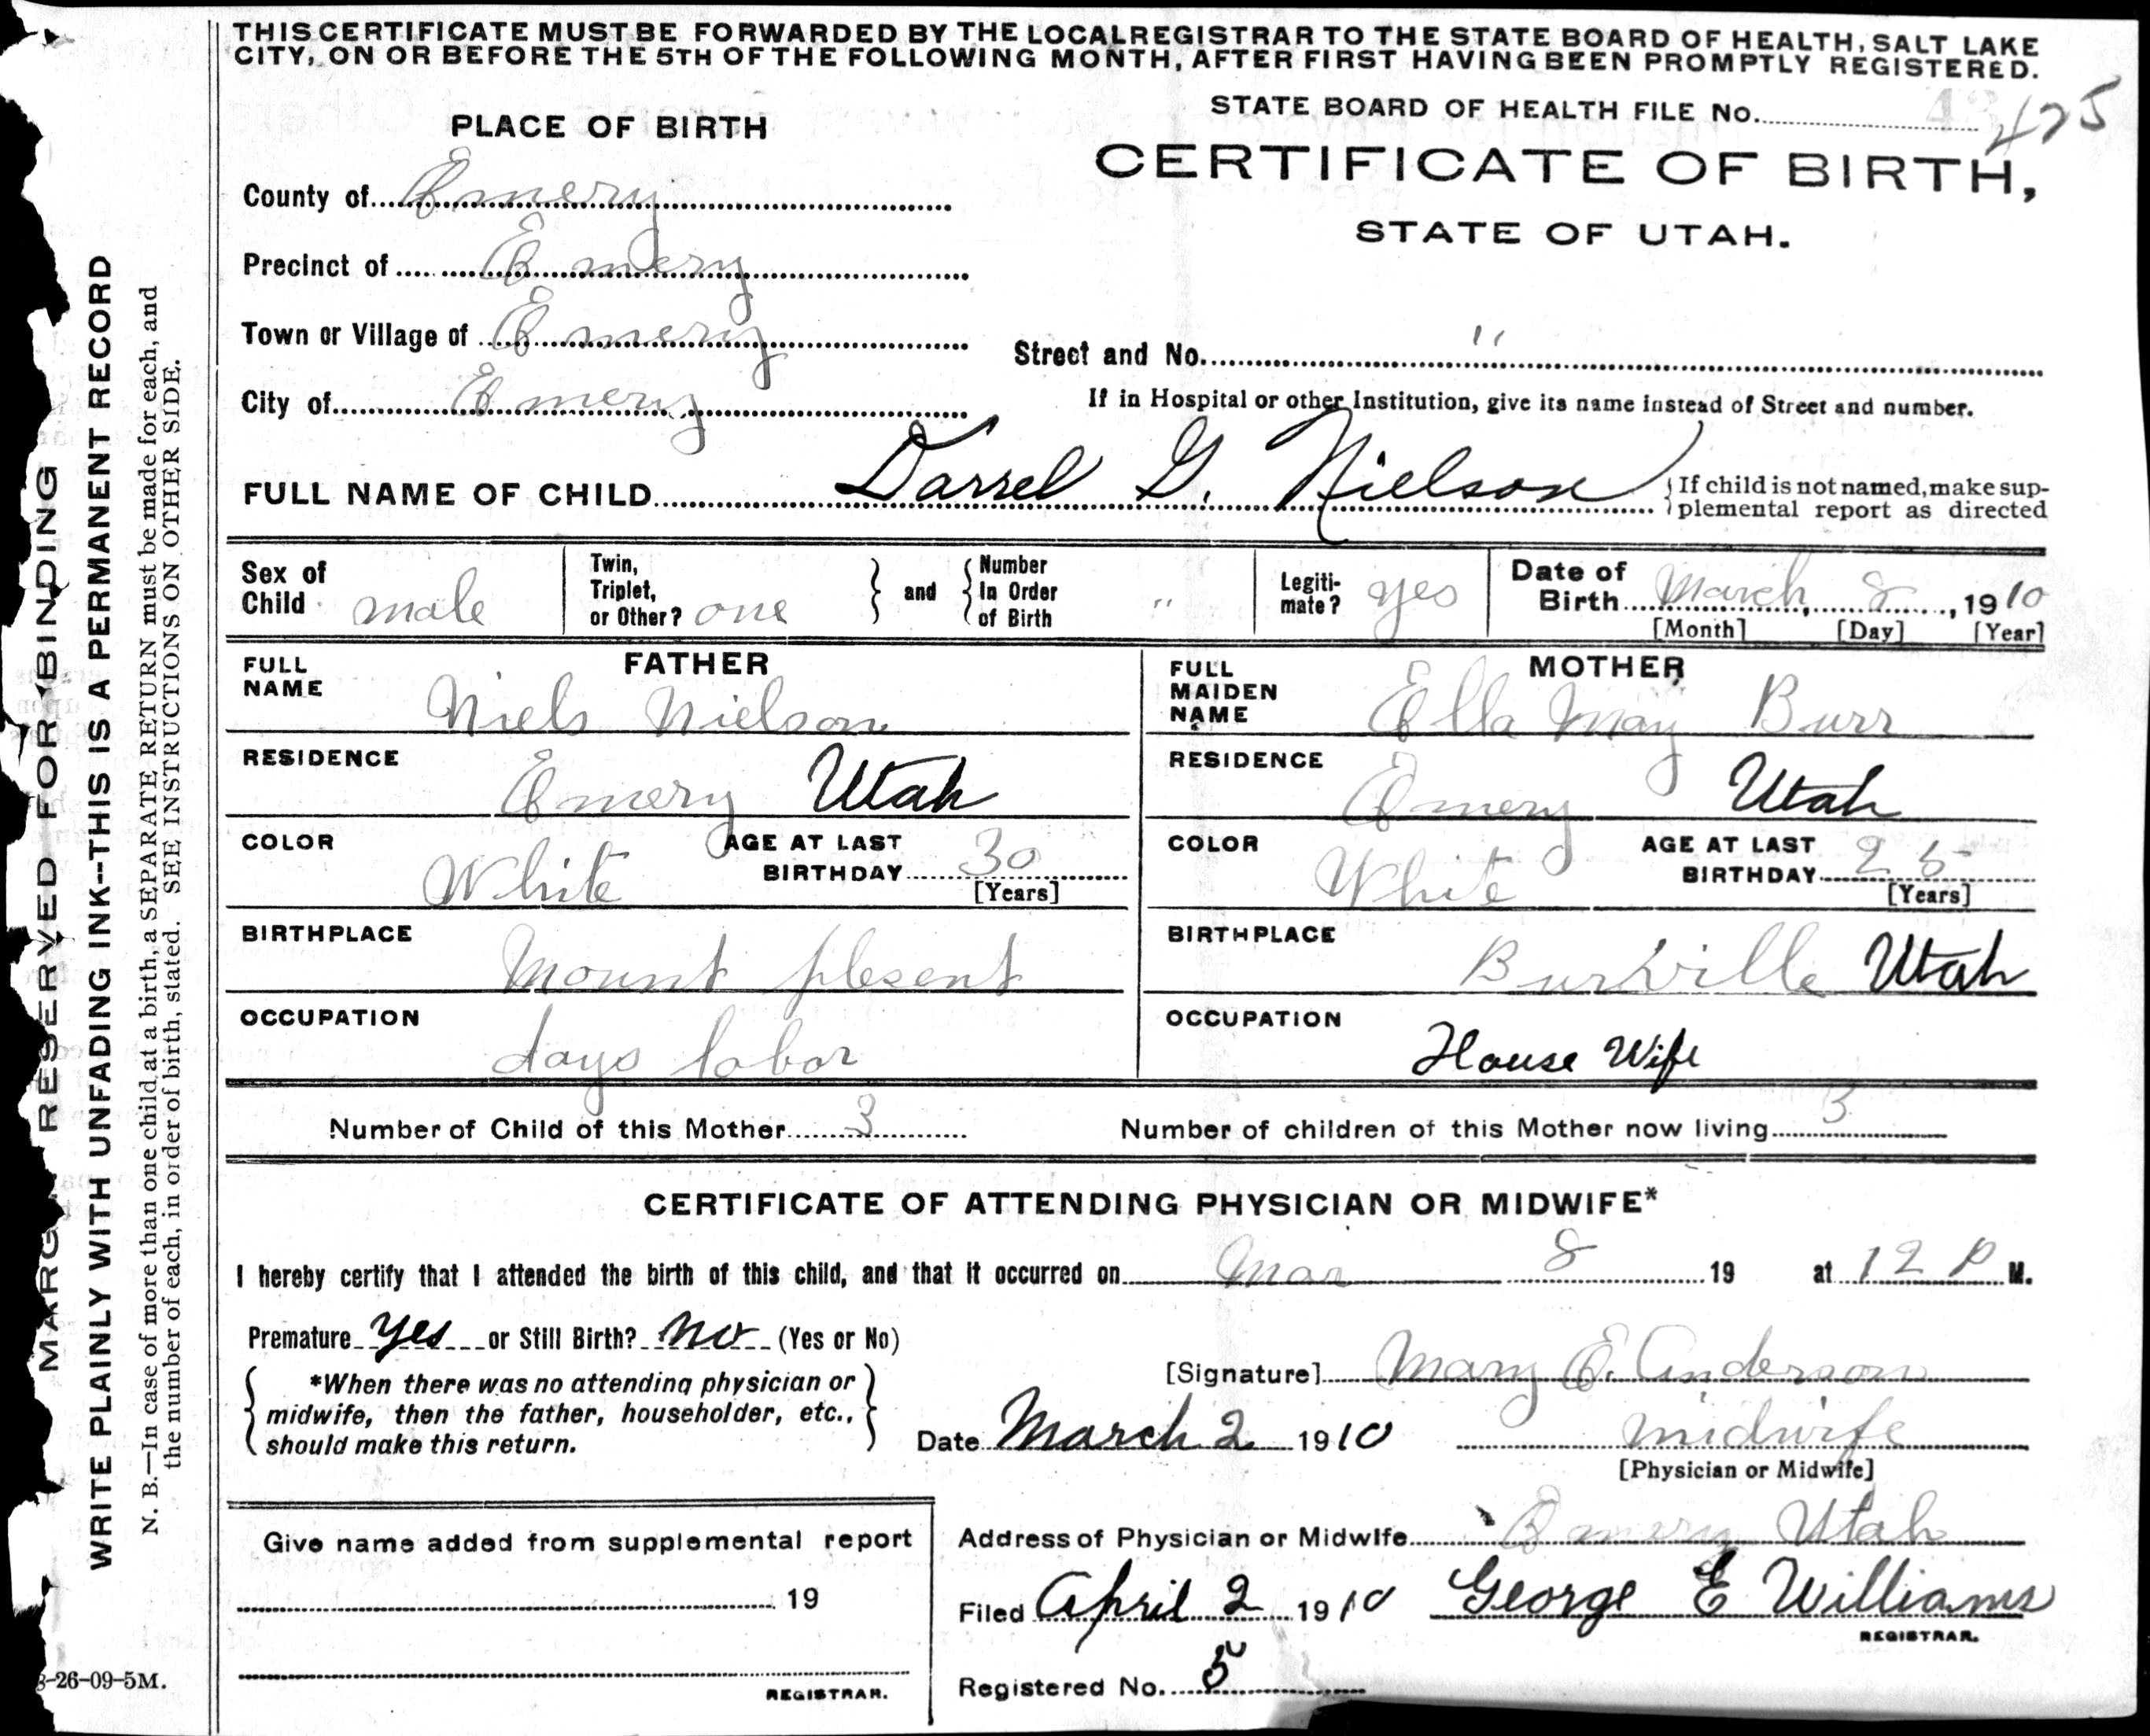 THIS CERTIFICATE MUST BE FORWARDED BY THE LOCAL REGISTRAR TO THE STATE BOARD OF HEALTH, SALT LAKE
CITY, ON OR BEFORE THE 5TH OF THE FOLLOWING MONTH, AFTER FIRST HAVING BEEN PROMPTLY REGISTERED.
STATE BOARD OF HEALTH FILE No. 425
PLACE OF BIRTH
CERTIFICATE OF BIRTH,
STATE OF UTAH.
County of Emery
Precinct of Emery
Town or Village of Emery
Street and No. "
City of Emery
If in Hospital or other Institution, give its name instead of Street and number.
FULL NAME OF CHILD Darrel G. Nielson
If child is not named, make sup-
plemental report as directed
Sex of Child male
Twin, Triplet, or Other? one
and
Number In Order of Birth "
Legiti-mate? yes
Date of Birth March, 8, 1910
[Month] [Day] [Year]
FATHER
FULL NAME Niels Nielson
RESIDENCE Emery Utah
COLOR White
AGE AT LAST BIRTHDAY 30
[Years]
BIRTHPLACE Mount plesent
OCCUPATION days labor
MOTHER
FULL MAIDEN NAME Ella May Burr
RESIDENCE Emery Utah
COLOR White
AGE AT LAST BIRTHDAY 25
[Years]
BIRTHPLACE Burrville Utah
OCCUPATION House Wife
Number of Child of this Mother 3
Number of children of this Mother now living 3
CERTIFICATE OF ATTENDING PHYSICIAN OR MIDWIFE*
I hereby certify that I attended the birth of this child, and that it occurred on Mar 8 19 at 12 P M.
Premature Yes or Still Birth? No (Yes or No)
*When there was no attending physician or
midwife, then the father, householder, etc.,
should make this return.
[Signature] Mary E. Anderson
Date March 2 1910
midwife
[Physician or Midwife]
Give name added from supplemental report
19
REGISTRAR.
Address of Physician or Midwife Emery Utah
Filed April 2 1910 George E Williams
REGISTRAR.
Registered No. 5
MARGIN RESERVED FOR BINDING
WRITE PLAINLY WITH UNFADING INK--THIS IS A PERMANENT RECORD
N. B.—In case of more than one child at a birth, a SEPARATE RETURN must be made for each, and
the number of each, in order of birth, stated. SEE INSTRUCTIONS ON OTHER SIDE.
3-26-09-5M.